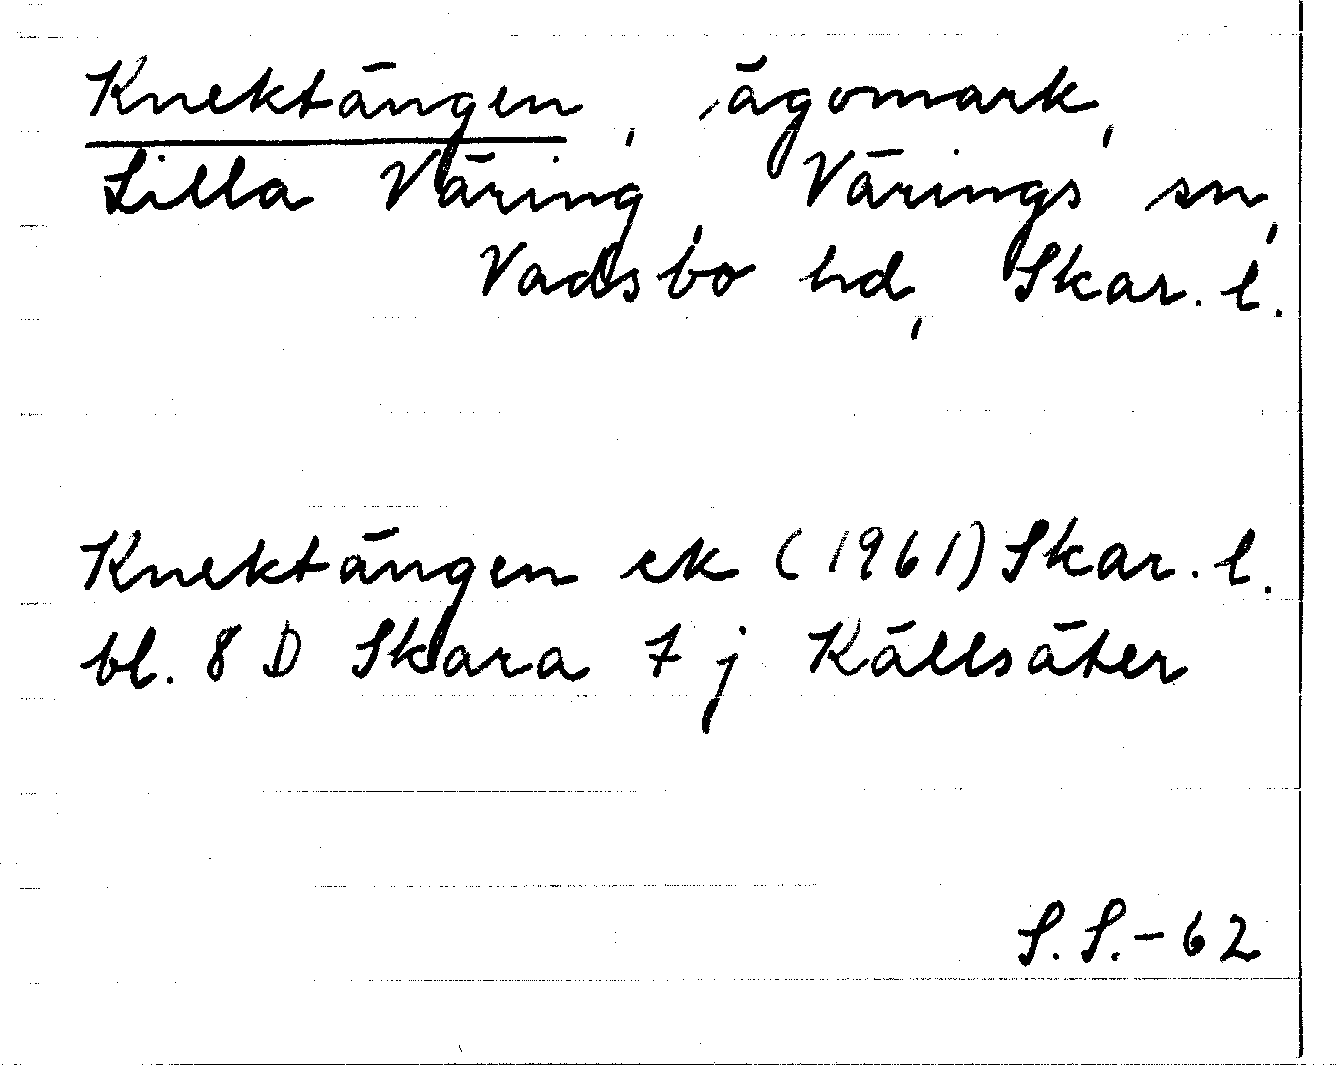 Knektängen, ägomark,
Lilla Väring, Värings sn,
Vadsbo hd, Skar. l.
Knektängen ek (1961) Skar. l.
bl. 8 D Skara 7 j Källsäter
S. S. - 62